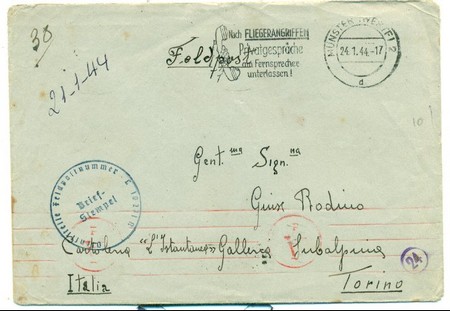 38
21-1-44
Feldpost
Nach FLIEGERANGRIFFEN
Privatgespräche
am Fernsprecher
unterlassen!
MÜNSTER (WESTF) 2
24.1.44.-17
d
10
Gent.ma Sign.na
Giusx Rodino
Brief-
Stempel
Cartolena "L'Istantanea" Galleria Subalpina
24
Italia
Torino